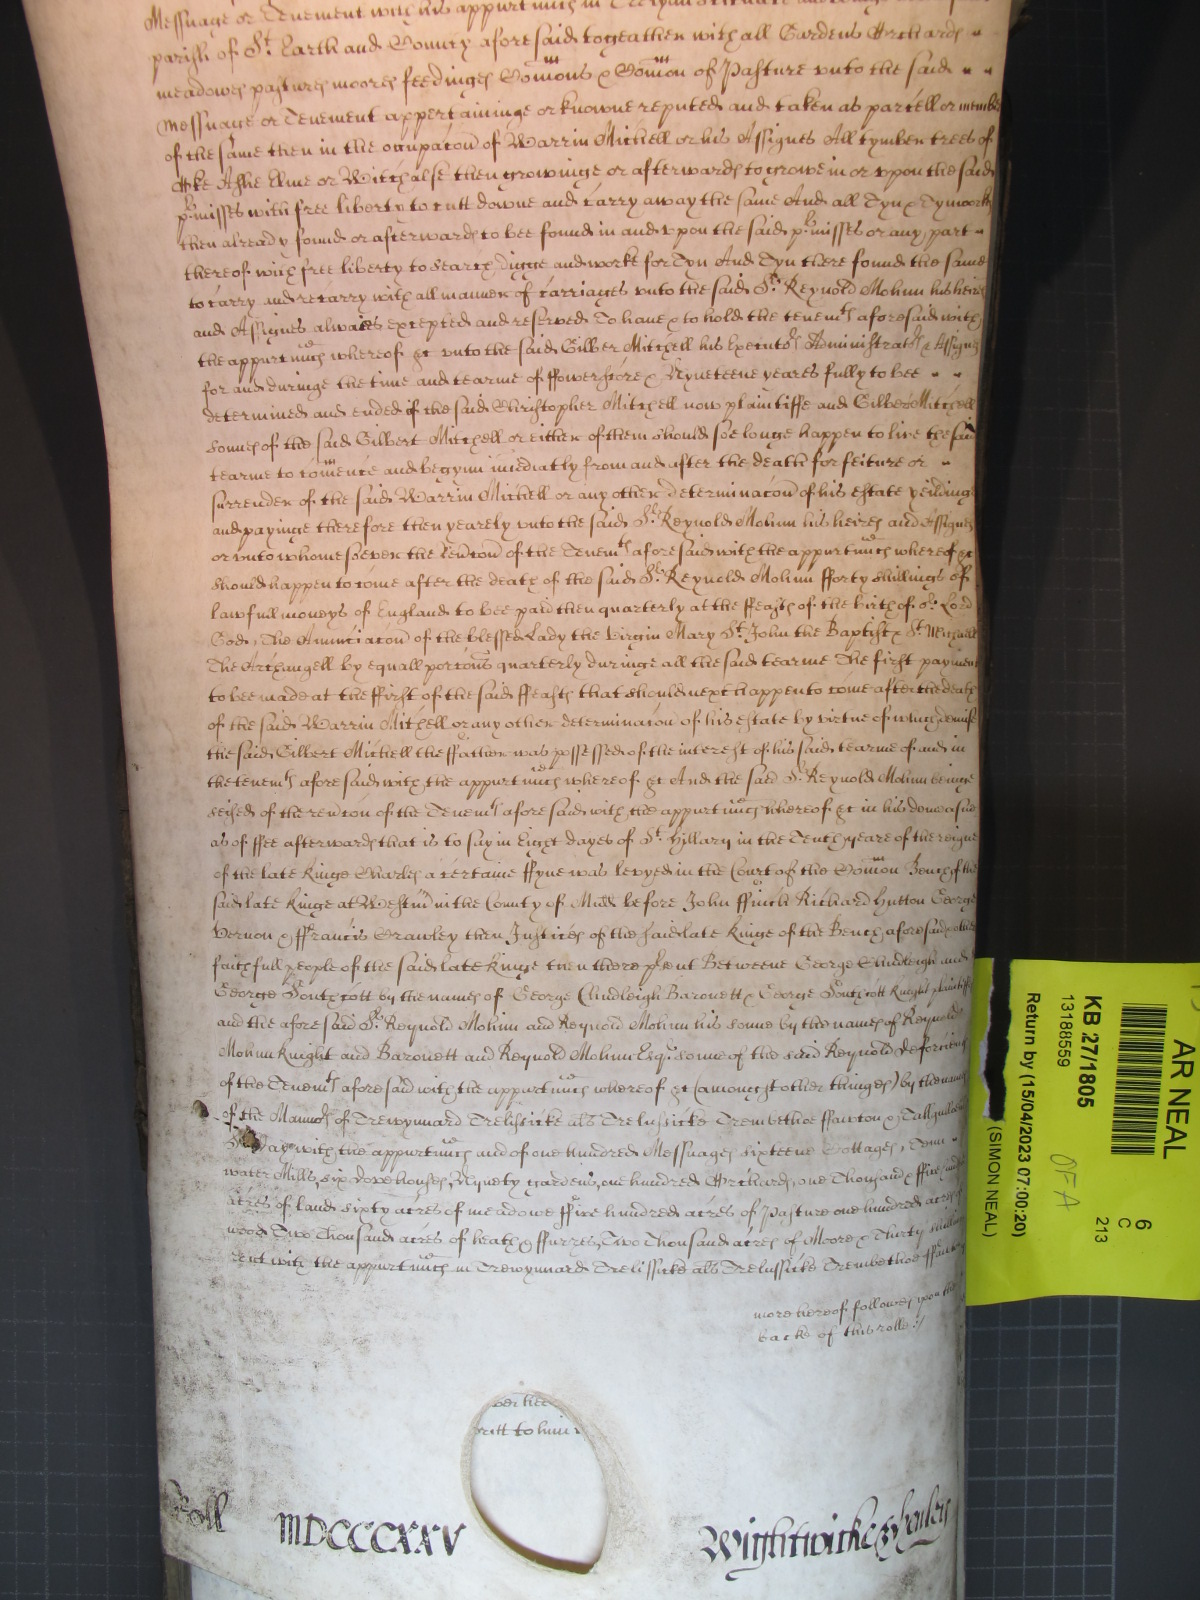 Messuage or Tenement with his appurtnncs in
parish of St. Earth and County aforesaid togeather with all Gardens Orchards
meadowes pastures moores feedinges Comons & Comon of Pasture unto the said
Messuage or Tenement appertaininge or knowne reputed and taken as parcell or member
of the same then in the occupacon of Warrin Michell or his Assignes All tymber trees of
Oke Ashe Elme or Witchalse then growinge or afterwards to growe in or upon the said
pr.misses with free liberty to cutt downe and carry away the same And all Tyn & Tynworks
then already found or afterwards to bee found in and upon the said pr.misses or any part
thereof with free liberty to search digge and worke for Tyn And Tyn there found the same
to carry and recarry with all manner of carriages unto the said Sr. Reynold Mohun his heires
and Assignes alwaies excepted and reserved To have & to hold the tenemts aforesaid with
the appurtnncs whereof &c unto the said Gilber Mitchell his Executors Administrators & Assignes
for and duringe the time and tearme of ffowerscore & Nyneteene yeares fully to bee
determined and ended if the said Christopher Mitchell now plaintiffe and Gilbert Mitchell
sonnes of the said Gilbert Mitchell or either of them should soe longe happen to live the said
tearme to comence and begynn imediatly from and after the death forfeiture or
surrender of the said Warrin Michell or any other determinacon of his estate yeildinge
and payinge therefore then yearely unto the said Sr. Reynold Mohun his heires and Assignes
or unto whomesoever the revcon of the Tenemts aforesaid with the appurtnncs whereof &c
should happen to come after the death of the said Sr. Reynold Mohun fforty shillings of
lawfull moneys of England to bee paid then quarterly at the ffeasts of the birth of or. Lord
God, The Anunciacon of the blessed Lady the Virgin Mary St. John the Baptist & St. Michaell
The Archangell by equall porcons quarterly duringe all the said tearme The first payment
to bee made at the ffirst of the said ffeasts that should next happen to come after the death
of the said Warrin Mitchell or any other determinacon of his estate by virtue of which demise
the said Gilbert Michell the ffather was possessed of the interest of his said tearme of and in
the tenemts aforesaid with the appurtnncs whereof &c And the said Sr. Reynold Mohun beinge
seised of the revcon of the Tenemts aforesaid with the appurtnncs whereof &c in his demeasne
as of ffee afterwards that is to say in Eight dayes of St. Hillary in the Tenth yeare of the reigne
of the late Kinge Charles a certaine ffyne was levyed in the Court of the Comon Bench of the
said late Kinge at Westm in the County of Midd before John ffinch Richard Hutton George
Vernon & ffrancis Crawley then Justices of the said late Kinge of the Bench aforesaid & other
faithfull people of the said late Kinge then there psent Betweene George Chudleigh and
George Southcott by the names of George Chudleigh Baronett & George Southcott Knight plaintiffs
and the aforesaid Sr. Reynold Mohun and Reynold Mohun his sonne by the names of Reynold
Mohun Knight and Baronett and Reynold Mohun Esqr. sonne of the said Reynold deforcients
of the Tenemts aforesaid with the appurtnncs whereof &c (amongst other thinges) by the name
of the Mannors of Trewynnard Trelissicke als Trelussicke Trembethoe ffawton &
with the appurtnncs and of one hundred Messuages sixteene Cottages, Tenn
water Mills, six dovehouses, Nynety gardens, one hundred Orchards, one Thousand & ffive hundred
acres of land sixty acres of meadowe ffive hundred acres of Pasture one hundred acres of
wood Two Thousand acres of heath & ffurzes, Two Thousand acres of Moore & Thirty shillings
rent with the appurtnncs in Trewynnard Trelissicke als Trelussicke Trembethoe ffawton
more hereof followes upon the
backe of this rolle
ritt to him
Roll MDCCCXXV Wightwicke
AR NEAL
KB 27/1805
13188559
6
C
213
OFA
Return by (15/04/2023 07:00:20)
(SIMON NEAL)